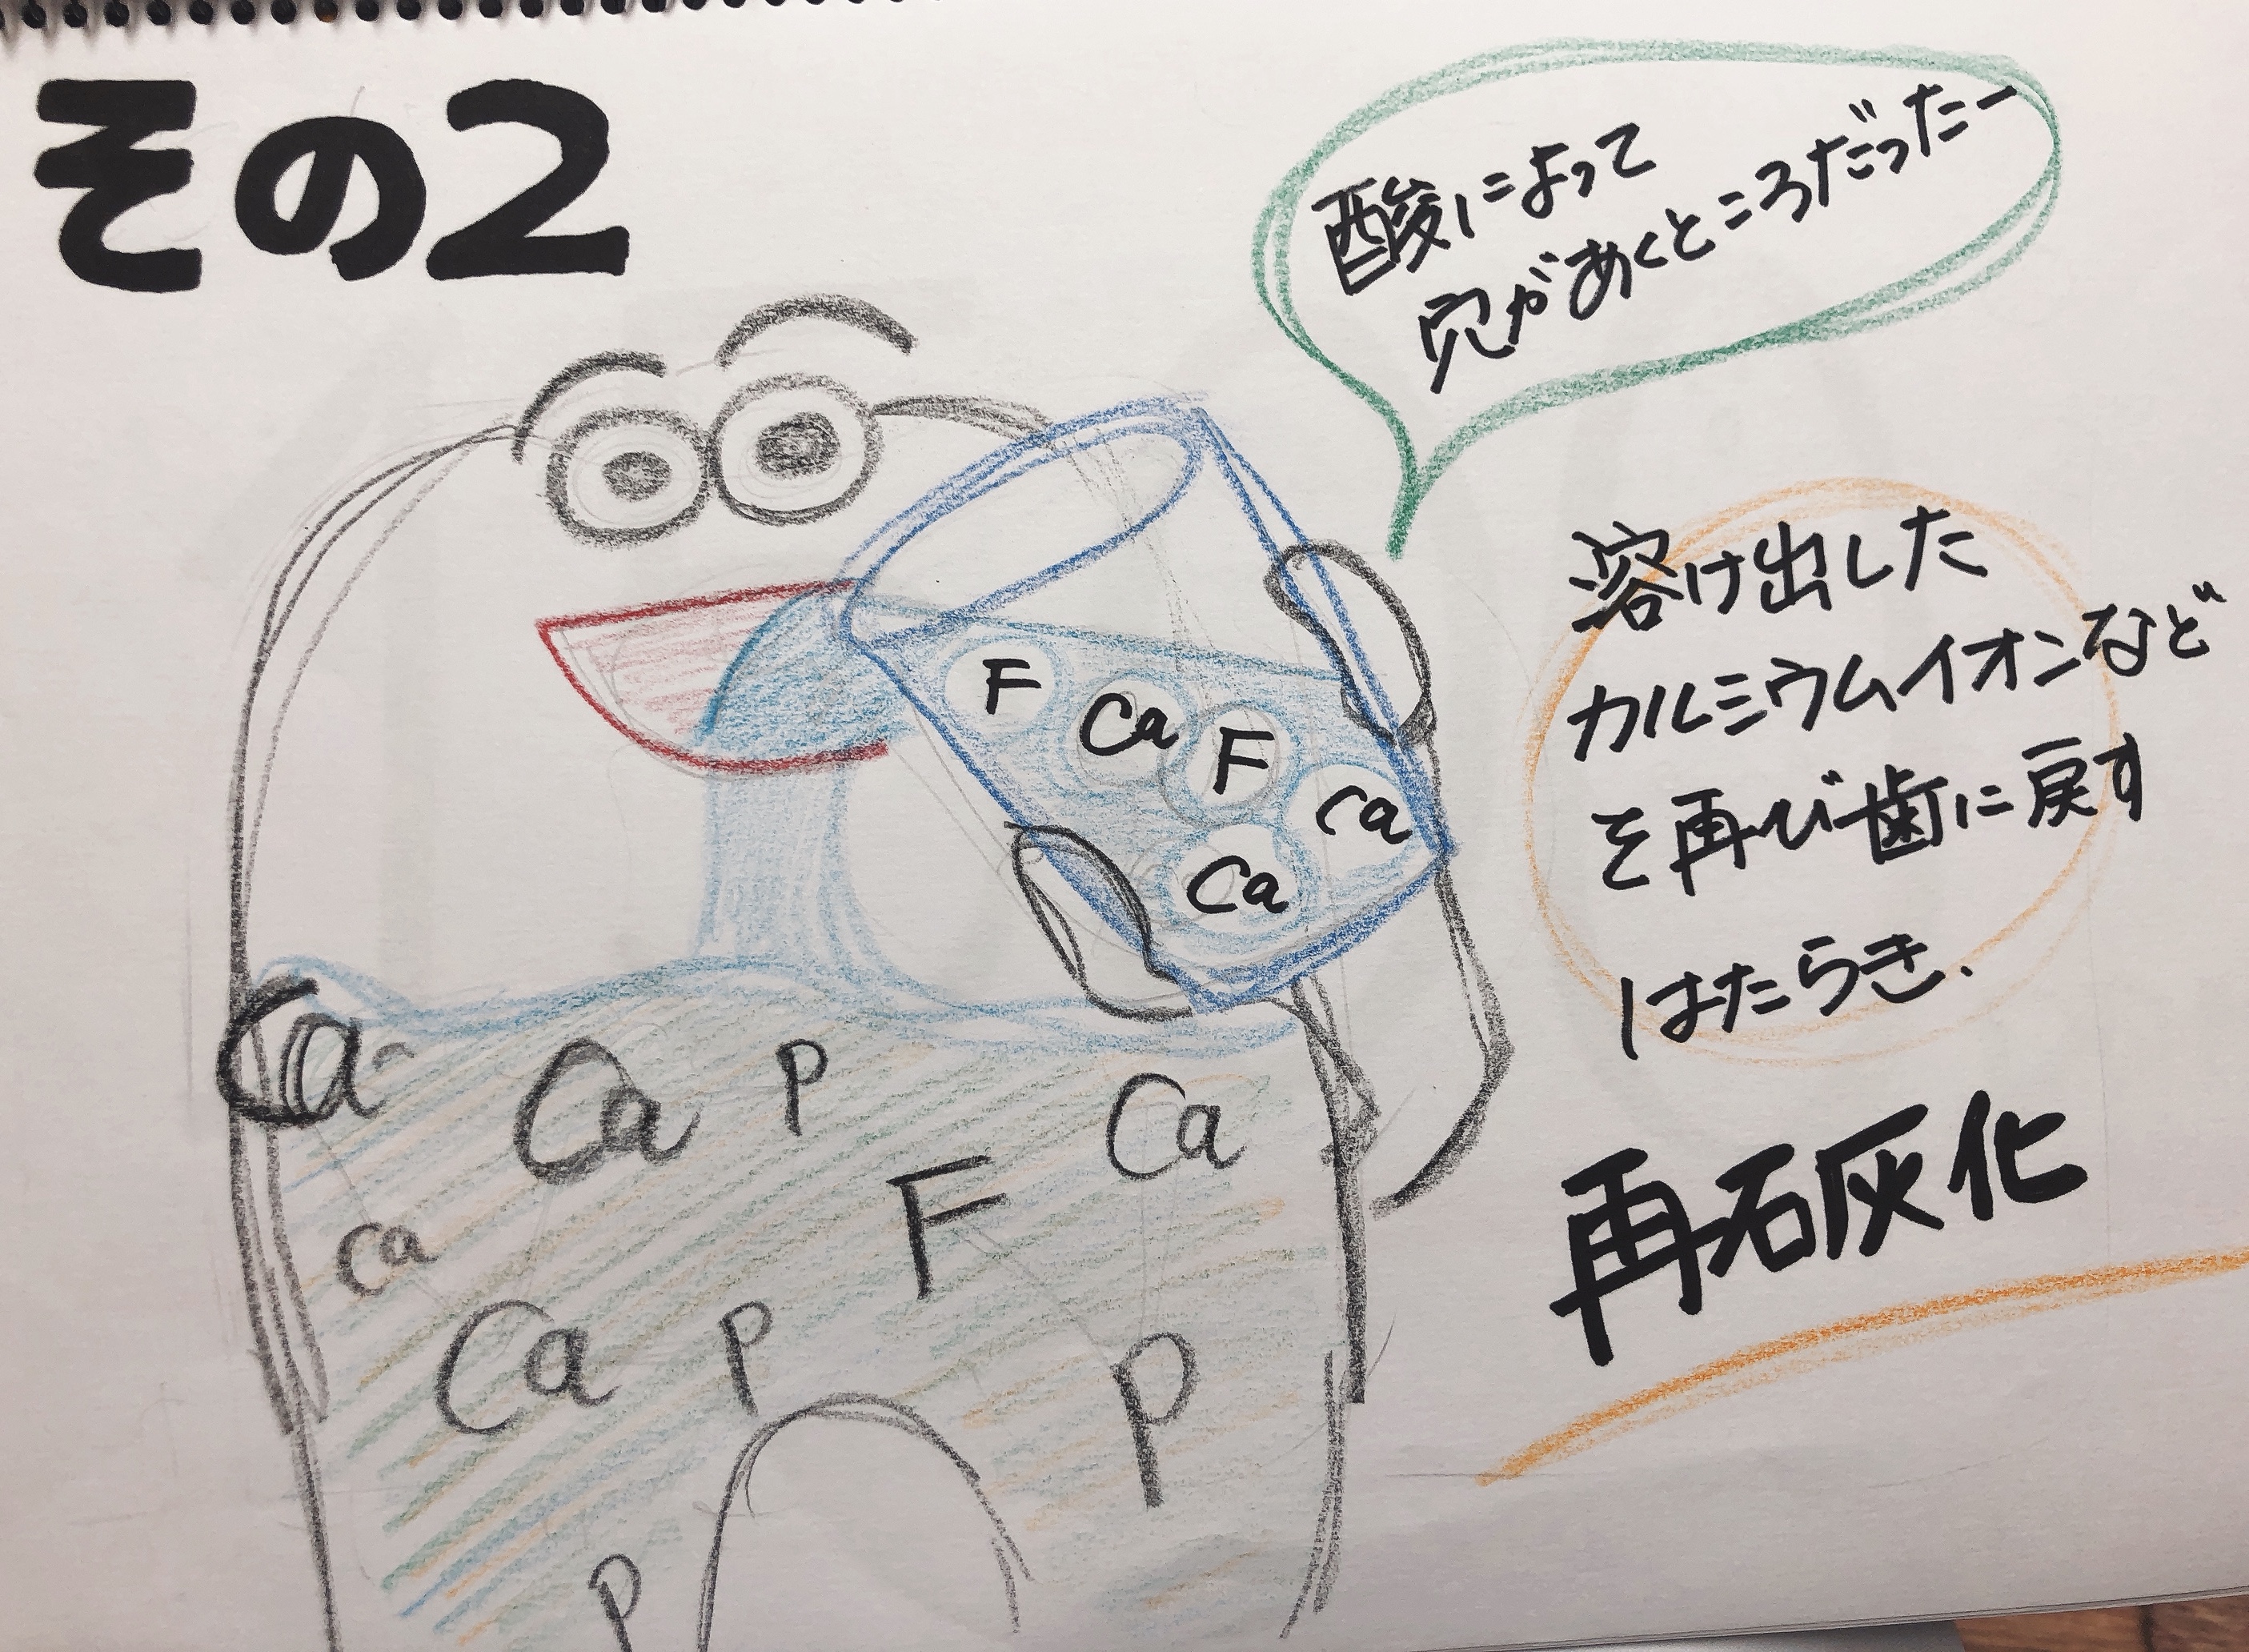 その2
酸によって
穴があくところだったー
溶け出した
カルシウムイオンなど
を再び歯に戻す
はたらき.
再石灰化
F
Ca
F
Ca
Ca
Ca
Ca
P
Ca
Ca
F
Ca
P
P
P